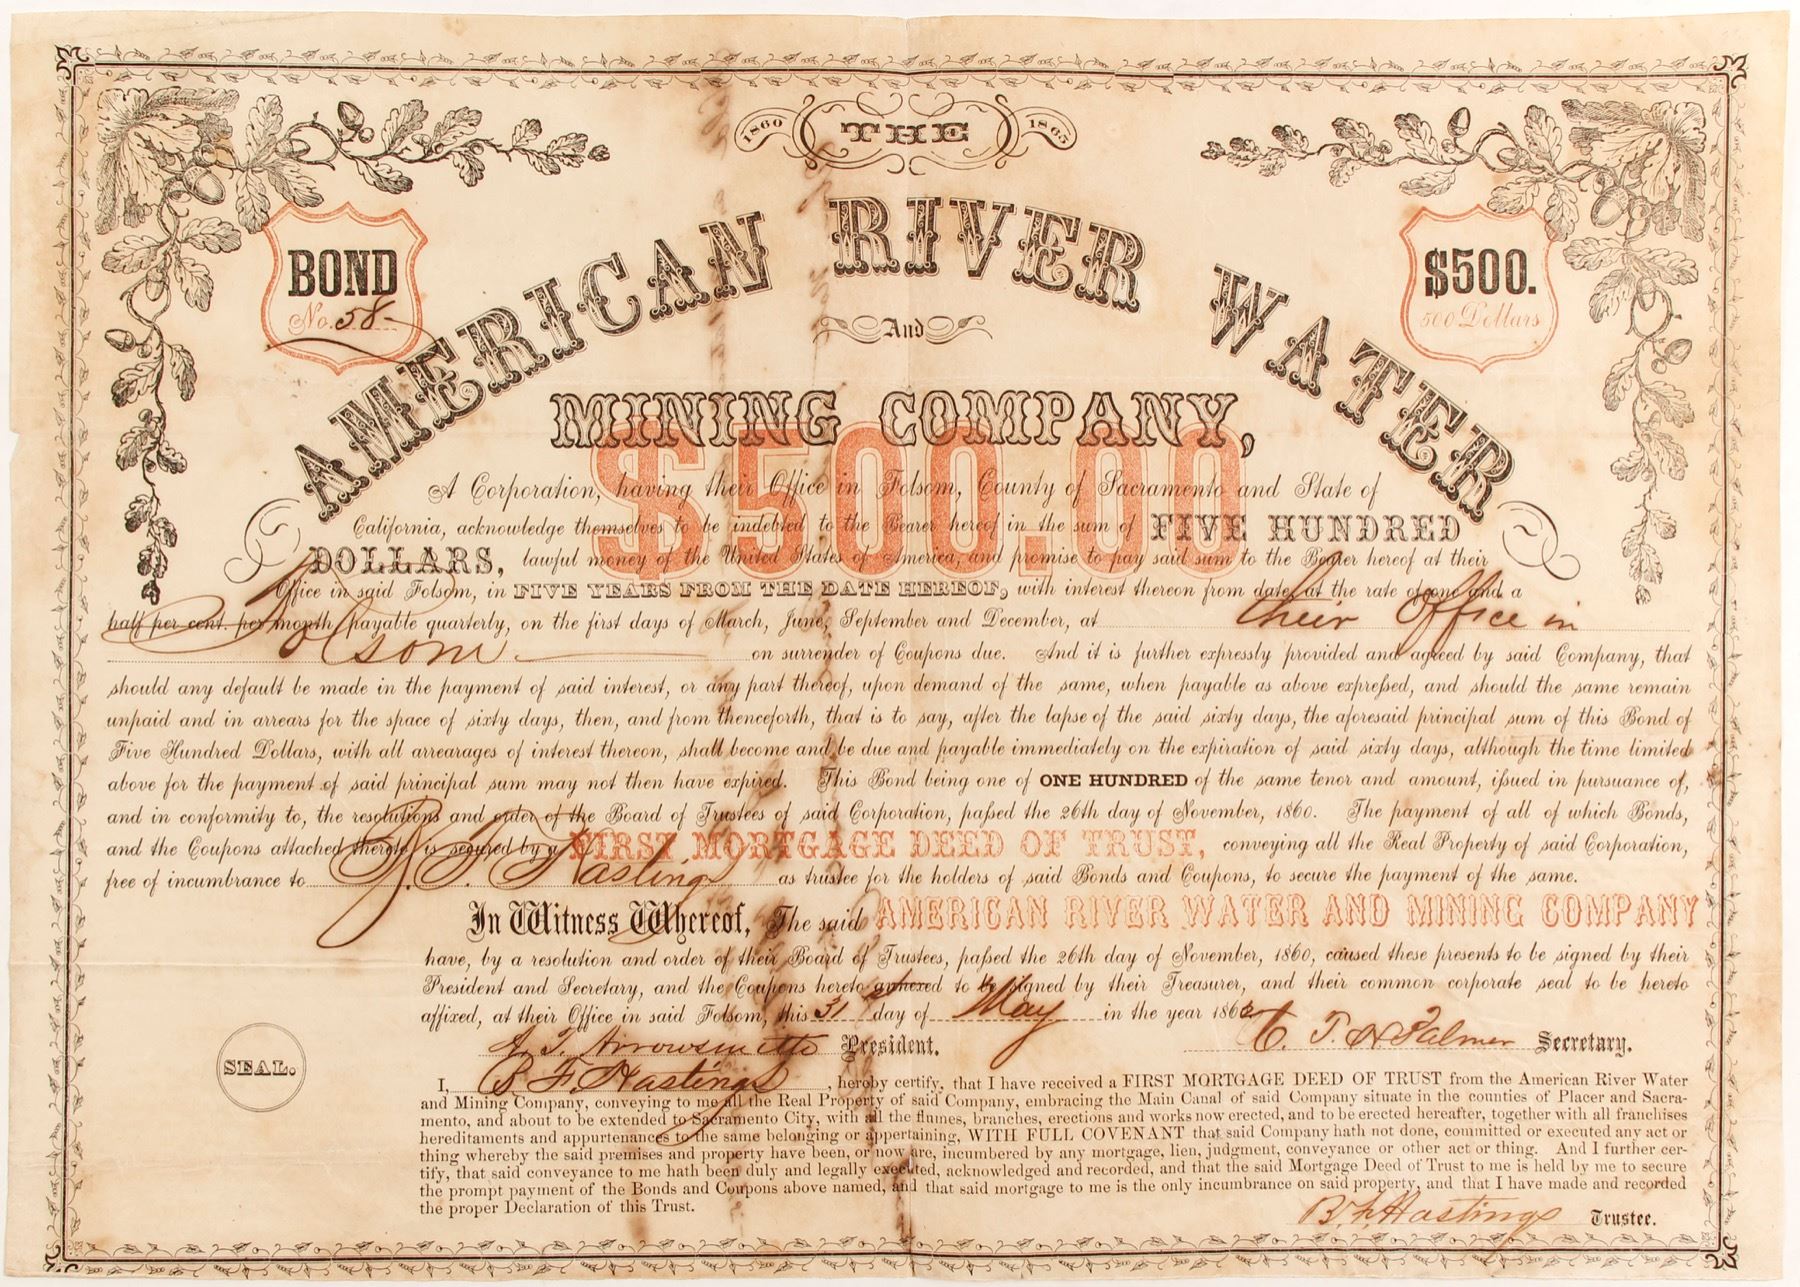 1860 THE 1865
AMERICAN RIVER WATER
BOND
No. 58
$500.
500 Dollars
And
MINING COMPANY,
$500.00
A Corporation, having their Office in Folsom, County of Sacramento and State of
California, acknowledge themselves to be indebted to the Bearer hereof in the sum of FIVE HUNDRED
DOLLARS, lawful money of the United States of America, and promise to pay said sum to the Bearer hereof at their
Office in said Folsom, in FIVE YEARS FROM THE DATE HEREOF, with interest thereon from date, at the rate of one and a
half per cent. per month payable quarterly, on the first days of March, June, September and December, at their Office in
Folsom on surrender of Coupons due. And it is further expressly provided and agreed by said Company, that
should any default be made in the payment of said interest, or any part thereof, upon demand of the same, when payable as above expreſsed, and should the same remain
unpaid and in arrears for the space of sixty days, then, and from thenceforth, that is to say, after the lapse of the said sixty days, the aforesaid principal sum of this Bond of
Five Hundred Dollars, with all arrearages of interest thereon, shall become and be due and payable immediately on the expiration of said sixty days, although the time limited
above for the payment of said principal sum may not then have expired. This Bond being one of ONE HUNDRED of the same tenor and amount, iſsued in pursuance of,
and in conformity to, the resolutions and order of the Board of Trustees of said Corporation, paſsed the 26th day of November, 1860. The payment of all of which Bonds,
and the Coupons attached thereto is secured by a FIRST MORTGAGE DEED OF TRUST, conveying all the Real Property of said Corporation,
free of incumbrance to B. F. Hastings as trustee for the holders of said Bonds and Coupons, to secure the payment of the same.
In Witness Whereof, The said AMERICAN RIVER WATER AND MINING COMPANY
have, by a resolution and order of their Board of Trustees, paſsed the 26th day of November, 1860, caused these presents to be signed by their
President and Secretary, and the Coupons hereto annexed to be signed by their Treasurer, and their common corporate seal to be hereto
affixed, at their Office in said Folsom, this 31st day of May in the year 1862
SEAL.
A. T. Arrowsmith President. C. T. H. Palmer Secretary.
I, B. F. Hastings, hereby certify, that I have received a FIRST MORTGAGE DEED OF TRUST from the American River Water
and Mining Company, conveying to me all the Real Property of said Company, embracing the Main Canal of said Company situate in the counties of Placer and Sacra-
mento, and about to be extended to Sacramento City, with all the flumes, branches, erections and works now erected, and to be erected hereafter, together with all franchises
hereditaments and appurtenances to the same belonging or appertaining, WITH FULL COVENANT that said Company hath not done, committed or executed any act or
thing whereby the said premises and property have been, or now are, incumbered by any mortgage, lien, judgment, conveyance or other act or thing. And I further cer-
tify, that said conveyance to me hath been duly and legally executed, acknowledged and recorded, and that the said Mortgage Deed of Trust to me is held by me to secure
the prompt payment of the Bonds and Coupons above named, and that said mortgage to me is the only incumbrance on said property, and that I have made and recorded
the proper Declaration of this Trust.
B. F. Hastings Trustee.